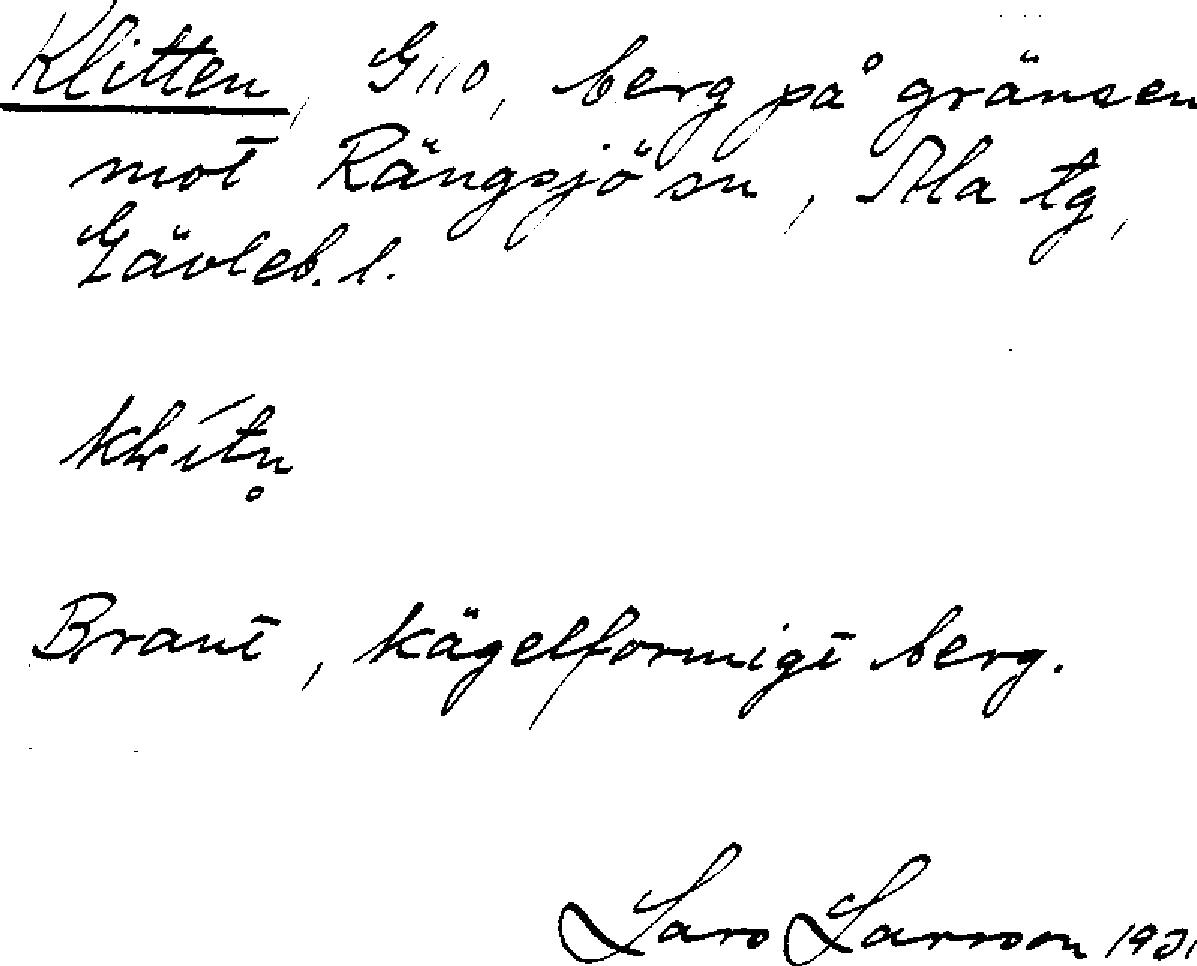 Klitten, G110, berg på gränsen
mot Rängsjö sn, Ala tg,
Gävleb. l.
Brant, kägelformigt berg.
Lars Larsson